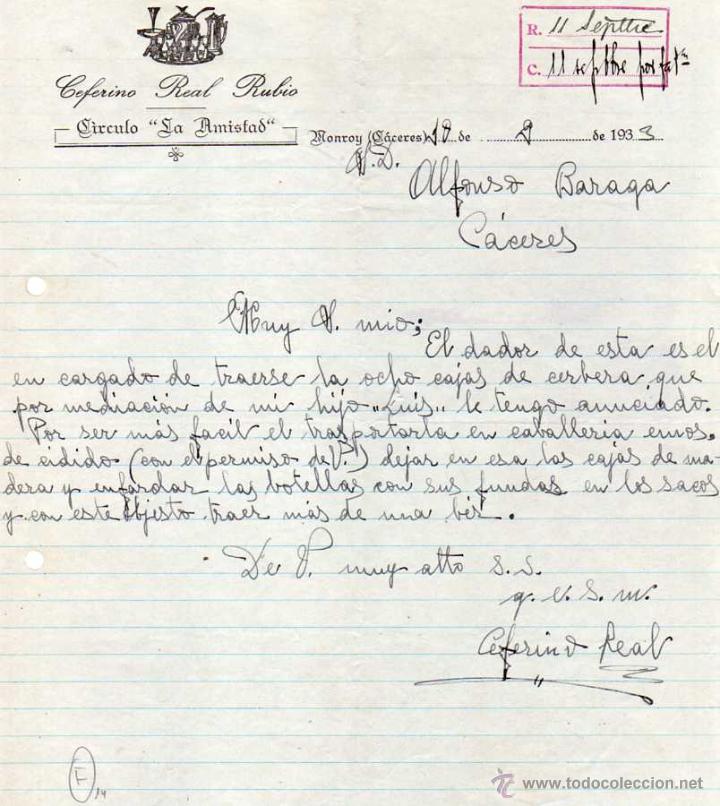 R. 11 Septbre
C. 11 septbre por
Ceferino Real Rubio
Circulo "La Amistad"
Monroy (Cáceres) 10 de 9 de 1933
S. D.
Alfonso Baraga
Cáceres
Muy S. mio;
El dador de esta es el
en cargado de traerse la ocho cajas de cerbera que
por mediación de mi hijo "Luis" le tengo anuciado.
Por ser más facil el trasportarla en caballeria emos
de cidido (con el permiso de V.) dejar en esa las cajas de ma-
dera y enfardar las botellas con sus fundas en los sacos
y con este objesto traer más de una bér.
De V. muy atto S. S.
q. e. s. m.
Ceferino Real
F
14
www.todocoleccion.net